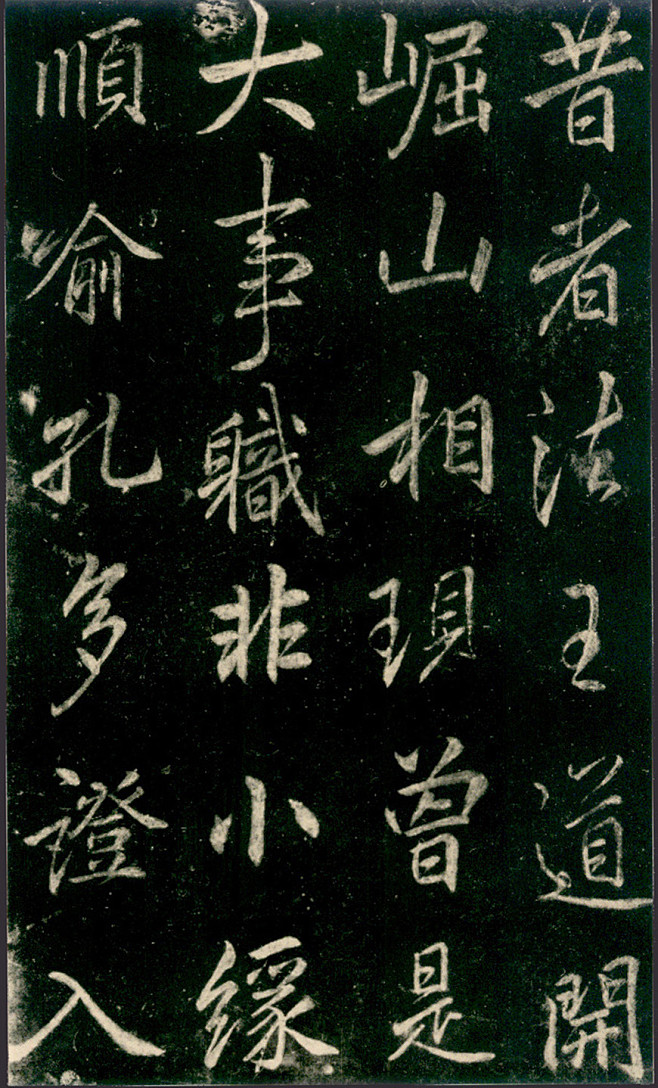 昔者法王道開
崛山相現曽是
大事職非小縁
順喻孔多證入